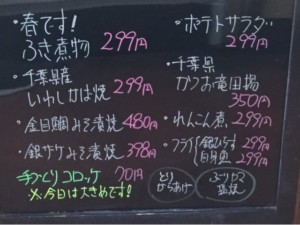 ・春です!
ふき煮物 299円
・千葉県産
いわしかば焼 299円
・金目鯛みそ漬焼 480円
・銀サケみそ漬焼 398円
手づくりコロッケ 70円
※今日は大きめです!
・ポテトサラダ
299円
・千葉県
かつお竜田揚
350円
・れんこん煮 299円
・フライ 銀ひらす 299円
白身魚 299円
とり
からあげ
塩焼